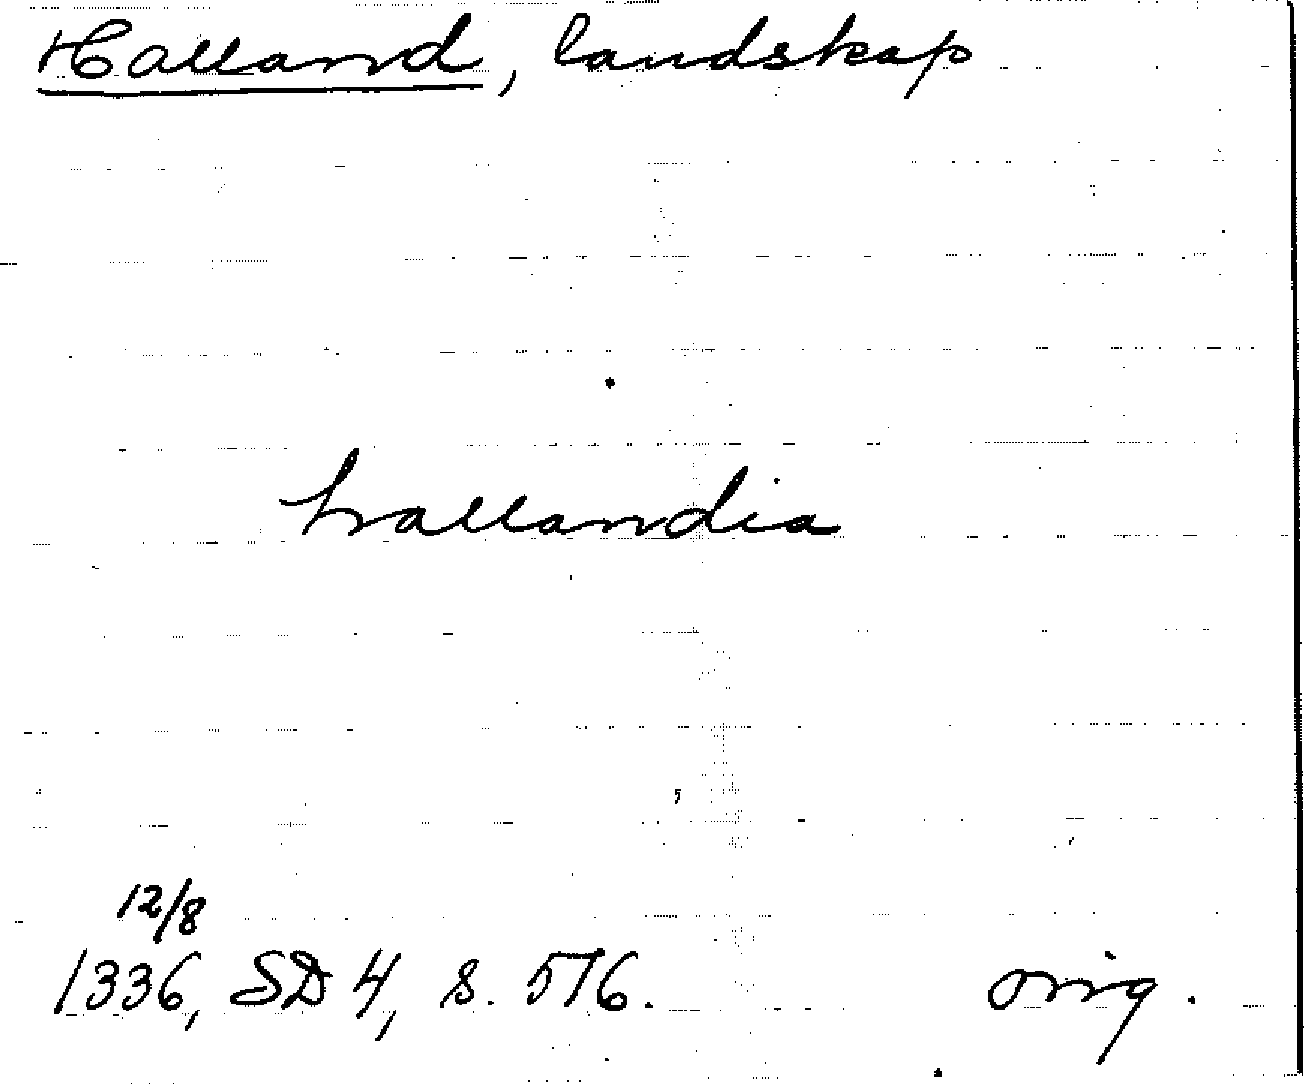 Halland, landskap
hallandia
12/8
1336, SD 4, s. 516. orig.